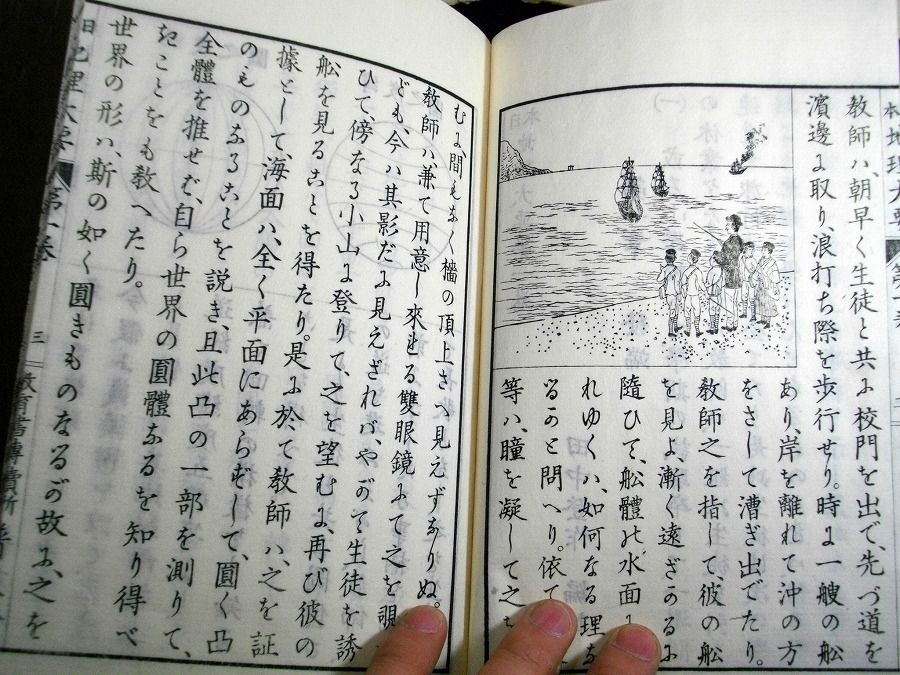 本地理大要
教師ハ、朝早く生徒と共ふ校門を出で、先づ道を
濱邊ょ取り、浪打ち際を歩行せり。時ょ一艘の舩
あり、岸を離れて沖の方
をさして漕ぎ出でたり。
教師之を指して、彼の舩
を見よ、漸く遠ざかるょ
隨ひて、舩體の水面
れゆくハ、如何なる理
るかと問へり。依て
等ハ、瞳を凝して之
むょ間もなく檣の頂上さへ見えずなりぬ。
教師ハ兼て用意し來れる雙眼鏡ふて之を覗
ども、今ハ其影だふ見えざれバ、やがて生徒を誘
ひて、傍なる小山ょ登りて、之を望むょ、再び彼の
舩を見ることを得たり。是ふ於て教師ハ、之を証
據として、海面ハ、全く平面にあらずして、圓く凸
のものなることを説き、且此凸の一部を測りて、
全體を推せば、自ら世界の圓體なるを知り得べ
きことをも教へたり。
世界の形ハ、斯の如く圓きものなるが故ふ、之を
第一卷
三